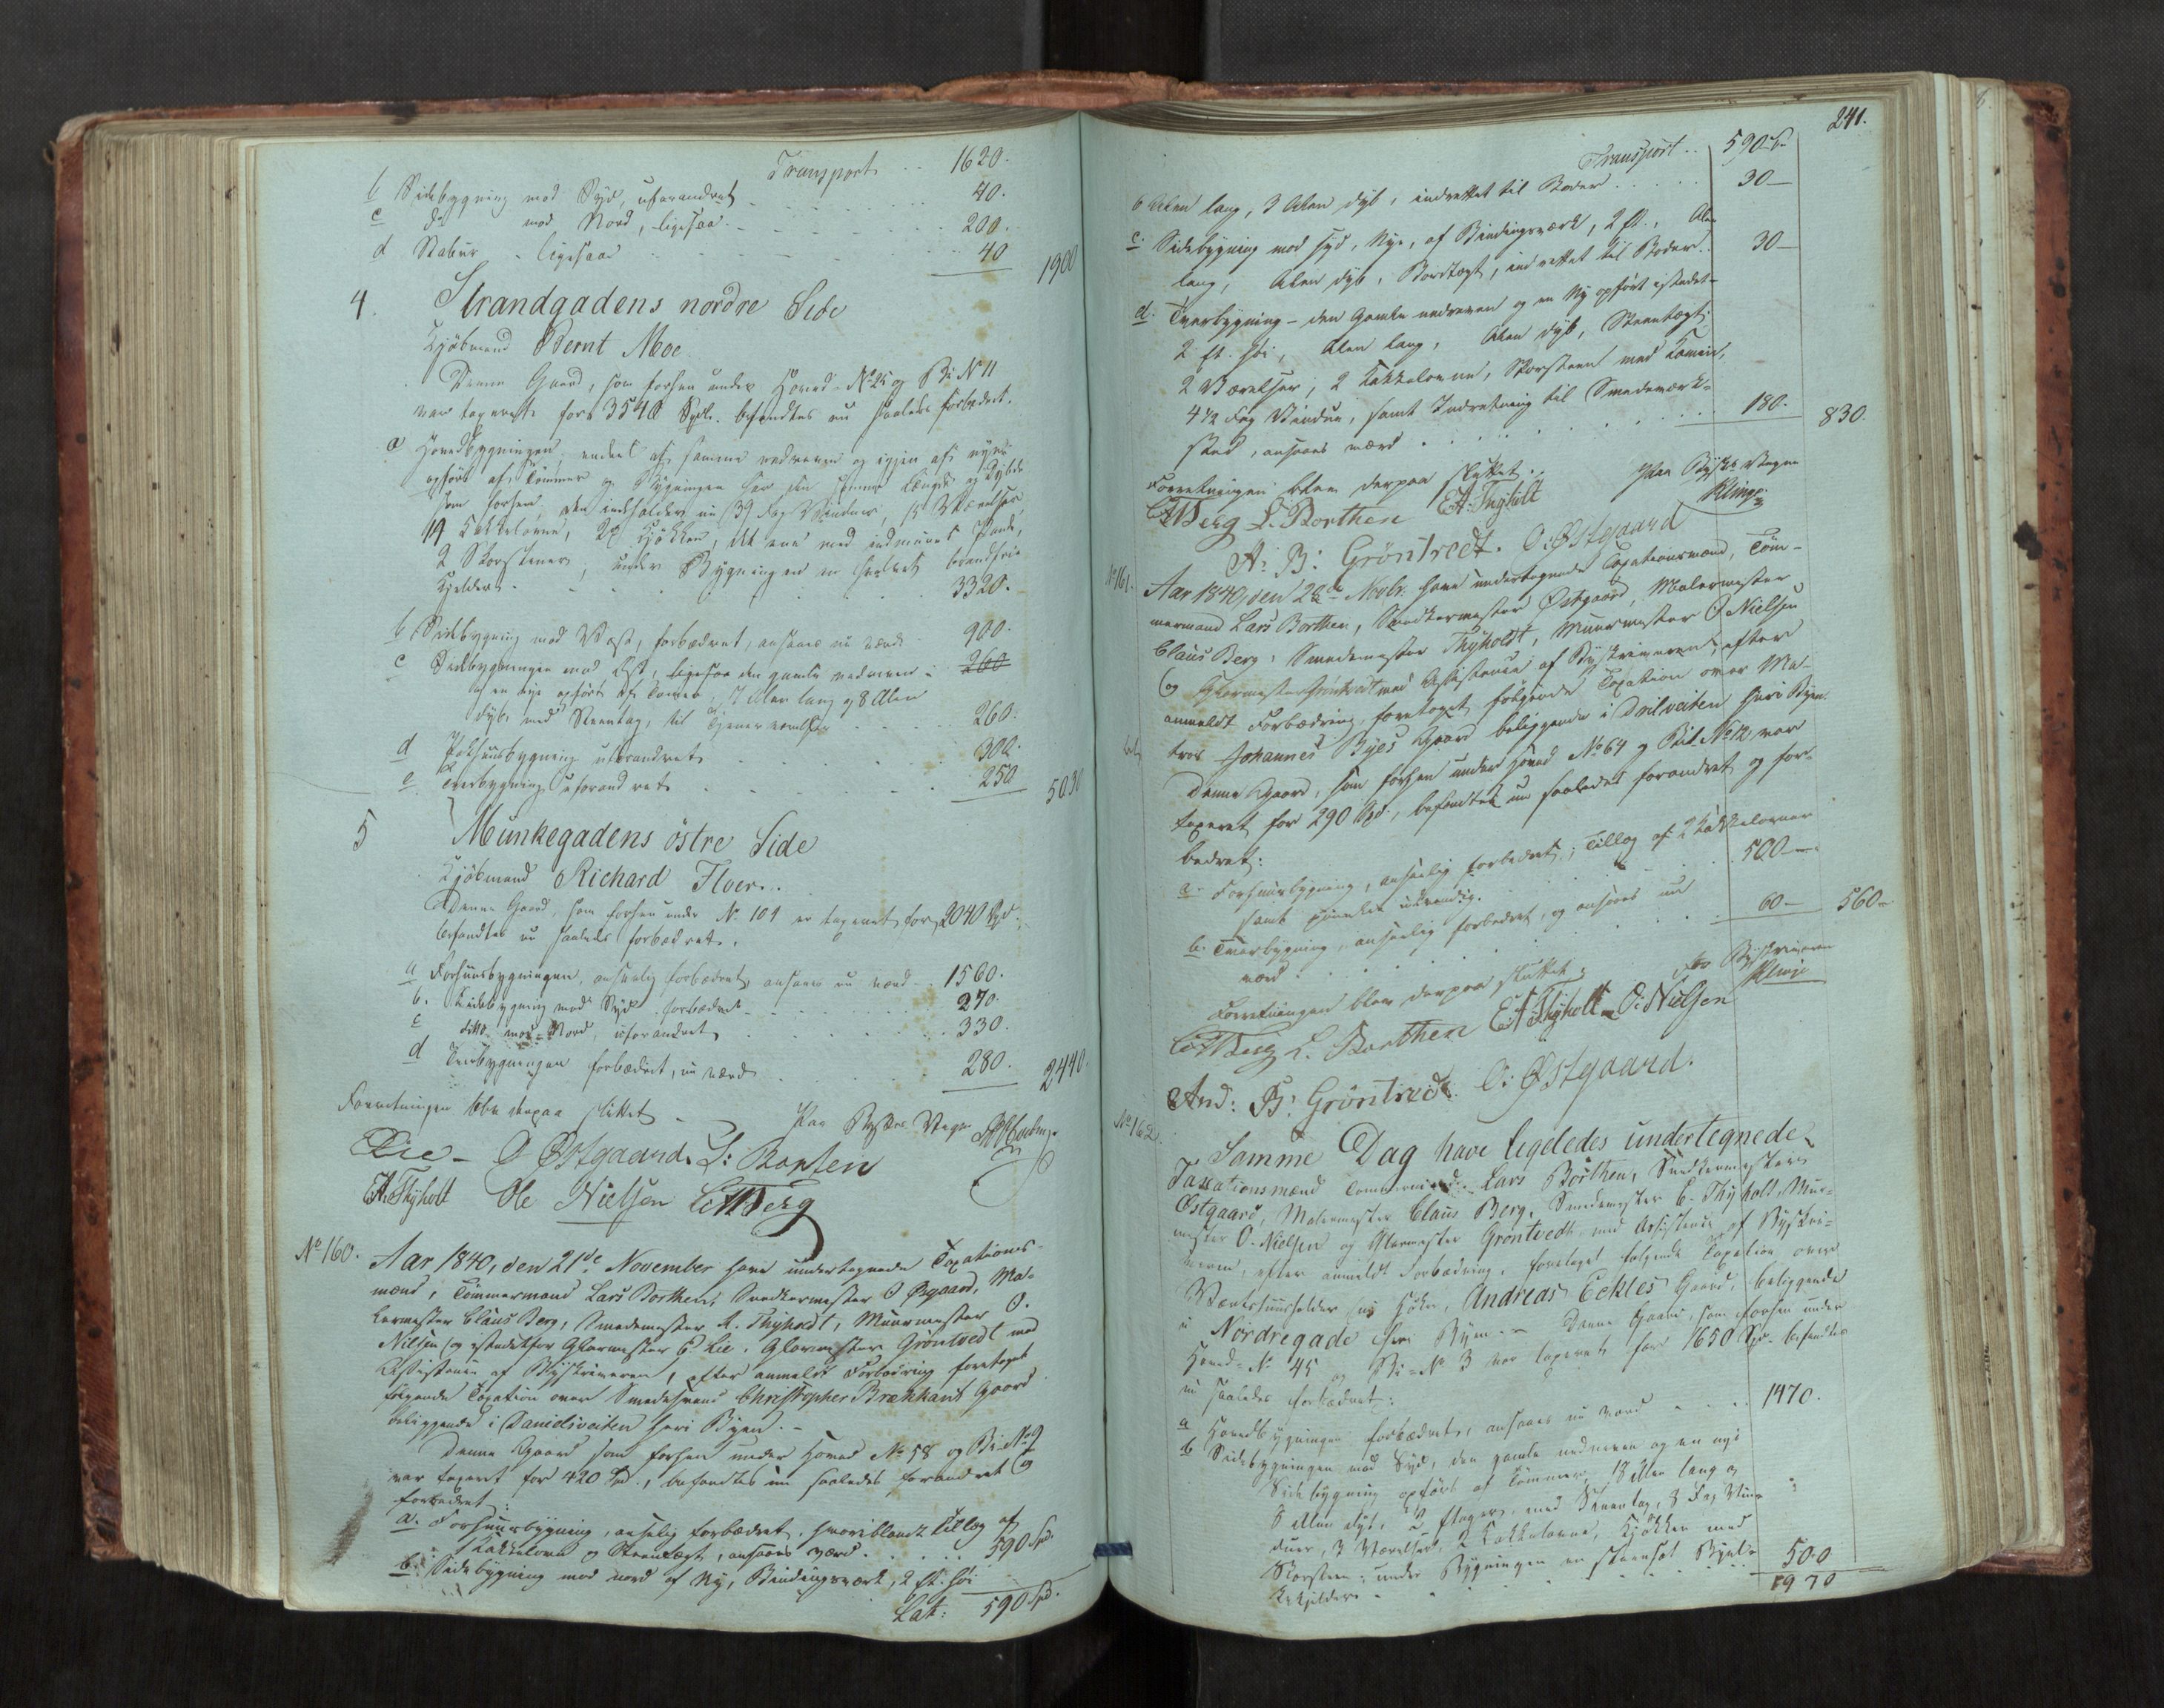 Transport . . 1620.
b Sidebygning mod Syd, uforandret 40.
c do mod Nord, ligesaa 200.
d Stabur - ligesaa 40 1900
4. Strandgadens nordre Side
Kjöbmand Bernt Moe
Denne Gaard, som forhen under Hoved-No 25 og Bi No 11
var taxeret for 3540 Spdlr. befandtes nu saaledes forbedret.
a Hovedbygningen, endeel af samme nedreven og igjen af nyt
opfört af Tömmer og Bygningen har sin samme Længde og Dybde
som forhen, den indeholder nu 39 Fag Vinduer, Værelser
19 Kakkelovne, 2 Kjökken, det ene med indmuret Pande,
2 Skorstene, under Bygningen er hvælvet brandfrie
Kjelder. 3320.
b Sidebygning mod Vest, forbedret, ansees nu værd 900.
c Sidebygningen mod Öst, ligesaa den gamle nedreven 260
og en nye opfört af Tömmer, 7 Alen lang og 8 Alen
dyb, med Steentag, til 260.
d Pakhuusbygning uforandret 300.
e Tverbygning uforandret 250 5030
5 Munkegadens östre Side
Kjöbmand Richard Floer.
Denne Gaard, som forhen under No 104 er taxeret for 2040 Spd.
befandtes nu saaledes forbedret.
a Forhuusbygningen, anseelig forbedret, ansees nu værd 1560.
b. Sidebygning mod Syd forbedret 270.
c ditto mod Nord, uforandret 330.
d Tverbygningen forbedret, nu værd 280. 2440.
Forretningen blev derpaa sluttet
Paa Byskr. Vegne
Lie - O Östgaard. L: Borten
E.A. Thyholt Ole Nielsen C. M Berg
No 160. Aar 1840, den 21de November have undertegnede Taxations-
mænd, Tömmermand Lars Borthen, Snedkermester O Östgaard, Ma-
lermester Claus Berg, Smedemester A. Thyholdt, Muurmester O.
Nilsen og istedetfor Glarmester E Lie, Glarmester Gröntvedt med
Assistence af Byskriveren, efter anmeldt Forbedring foretaget
fölgende Taxation over Smedesvend Christopher Brækhans Gaard
beliggende i Danielsveiten heri Byen. -
Denne Gaard som forhen under Hoved No 58 og Bi No 9
var taxeret for 420 Spd., befandtes nu saaledes forandret og
forbedret:
a. Forhuusbygning, anseelig forbedret, hvoriblandt Tillæg af
Kakkelovn og Steentægt, ansees værd 590 Spd.
b. Sidebygning mod nord af Ny, Bindingsværk, 2 Et. höi
Lat: 590 Spd.
241.
Transport . . 590 Sp
6 Alen lang, 3 Alen dyb, indrettet til Boder 30 -
c. Sidebygning mod Syd, Nye, af Bindingsværk, 2 Et., Alen
lang, Alen dyb, Bordtægt, indrettet til Boder. 30 -
d. Tverbygning - den Gamle nedreven og en Ny opfört istedet -
2 Et. höi, Alen lang, Alen dyb, Steentægt
2 Værelser, 2 Kakkelovne, Skorsteen med Kamin,
4 1/2 Fag Vindue, samt Indretning til Smedeværk-
sted, ansees værd 180. 830.
Forretningen blev derpaa sluttet.
Paa Byskr. Vegne
Klinge
C M Berg L. Borthen E A. Thyholt
A: B: Gröntvedt. O: Östgaard
No 161. Aar 1840, den 28de Novbr. have undertegnede Taxationsmænd, Töm-
mermand Lars Borthen, Snedkermester Östgaard, Malermester
Claus Berg, Smedemester Thyholdt, Muurmester O Nielsen
og Glarmester Gröntvedt med Assistence af Byskriveren, efter
anmeldt Forbedring, foretaget fölgende Taxation over Ma-
tros Johannes Byes Gaard beliggende i Drilveiten heri Byen.
Denne Gaard, som forhen under Hoved No 64 og Bi No 12 var
taxeret for 290 Spd., befandtes nu saaledes forandret og for-
bedret:
a. Forhuusbygning, anseelig forbedret, Tillæg af 2 Kakkelovner
samt udvendig. 500 -
b. Tverbygning, anseelig forbedret, og ansees nu
værd 60 - 560 -
Forretningen blev derpaa sluttet;
for Byskriveren
Klinge
C M Berg L. Borthen E A Thyholt O: Nielsen
And: B: Gröntvedt. O: Östgaard.
No 162. Samme Dag have ligeledes undertegnede
Taxationsmænd Tömmermand Lars Borthen, Snedkermester
Östgaard, Malermester Claus Berg, Smedemester E. Thyholt, Mur-
mester O. Nielsen og Glarmester Gröntvedt med Assistence af Byskri-
veren, efter anmeldt Forbedring, foretaget fölgende Taxation over
Værtshuusholder og Höker, Andreas Eckles Gaard, beliggende
i Nordregade heri Byen. - Denne Gaard, som forhen under
Hoved-No 45 og Bi-No 3 var taxeret for 1650 Spd. befandtes
nu saaledes forbedret:
a Hovedbygningen forbedret, ansees nu værd 1470.
b Sidebygningen mod Syd, den gamle nedreven og en nye
Sidebygning opfört af Tömmer, 18 Alen lang og
8 Alen dyb, 2 Etager, med Steentag, 8 Fag Vin-
duer, 3 Værelser, 2 Kakkelovne, Kjökken med
Skorsteen; under Bygningen en
Kjelder. 500
1970